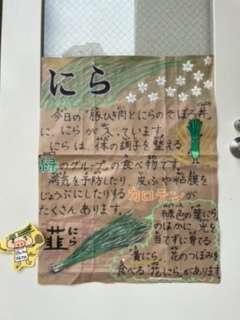 にら
今日の"豚ひき肉とにらのそぼろ丼"
に、にらが入っています。
にらは、体の調子を整える
緑のグループの食べ物です。
病気を予防したり、皮ふや粘膜を
じょうぶにしたりするカロテンが
たくさんあります。
韮 にら
緑色の葉にら
のほかに、光を
当てずに育てる
"黄にら"、花のつぼみを
食べる"花にら"があります